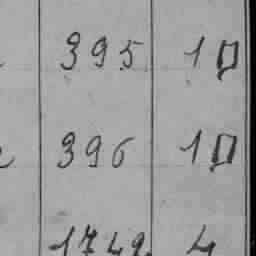 395 10
396 10
1749 4